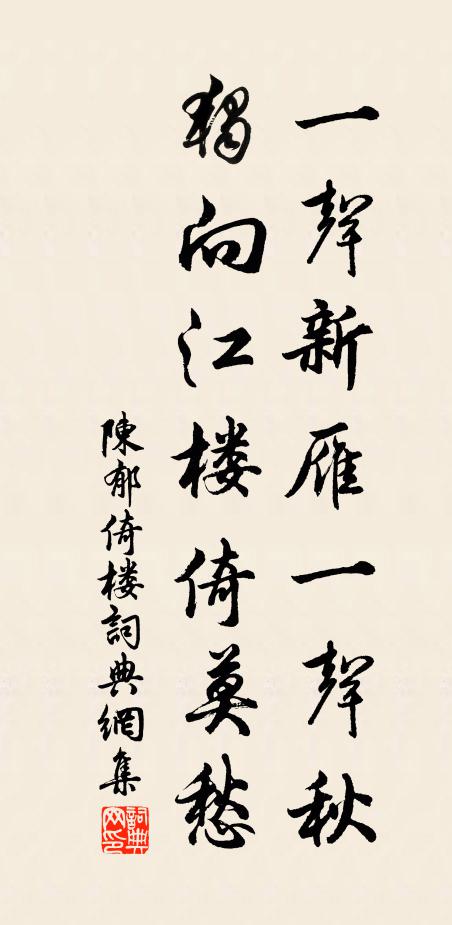 一聲新雁一聲秋
獨向江楼倚莫愁
陳郁倚楼詞典網集
詞典網印